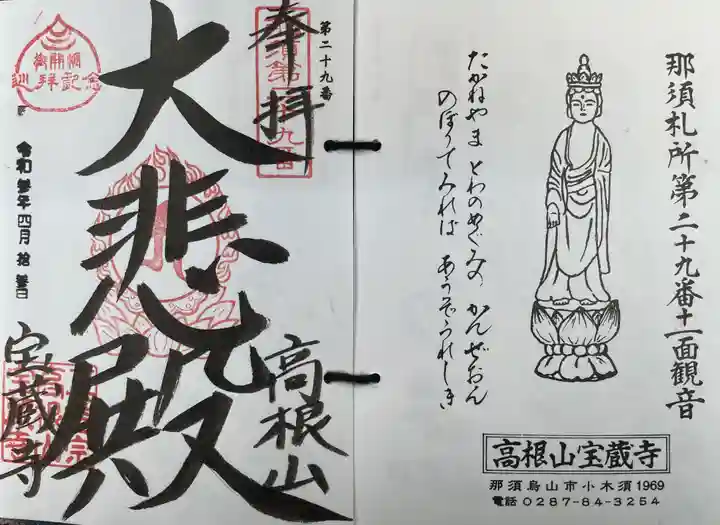 那須札所第二十九番十一面観音
たかねやま とわのめぐみの かんぜおん
のぼりてみれば ありぞうれしき
高根山宝蔵寺
那須烏山市小木須1969
電話0287-84-3254
第二十九番
奉拝
大悲殿
高根山
令和参年四月拾参日
宝蔵寺